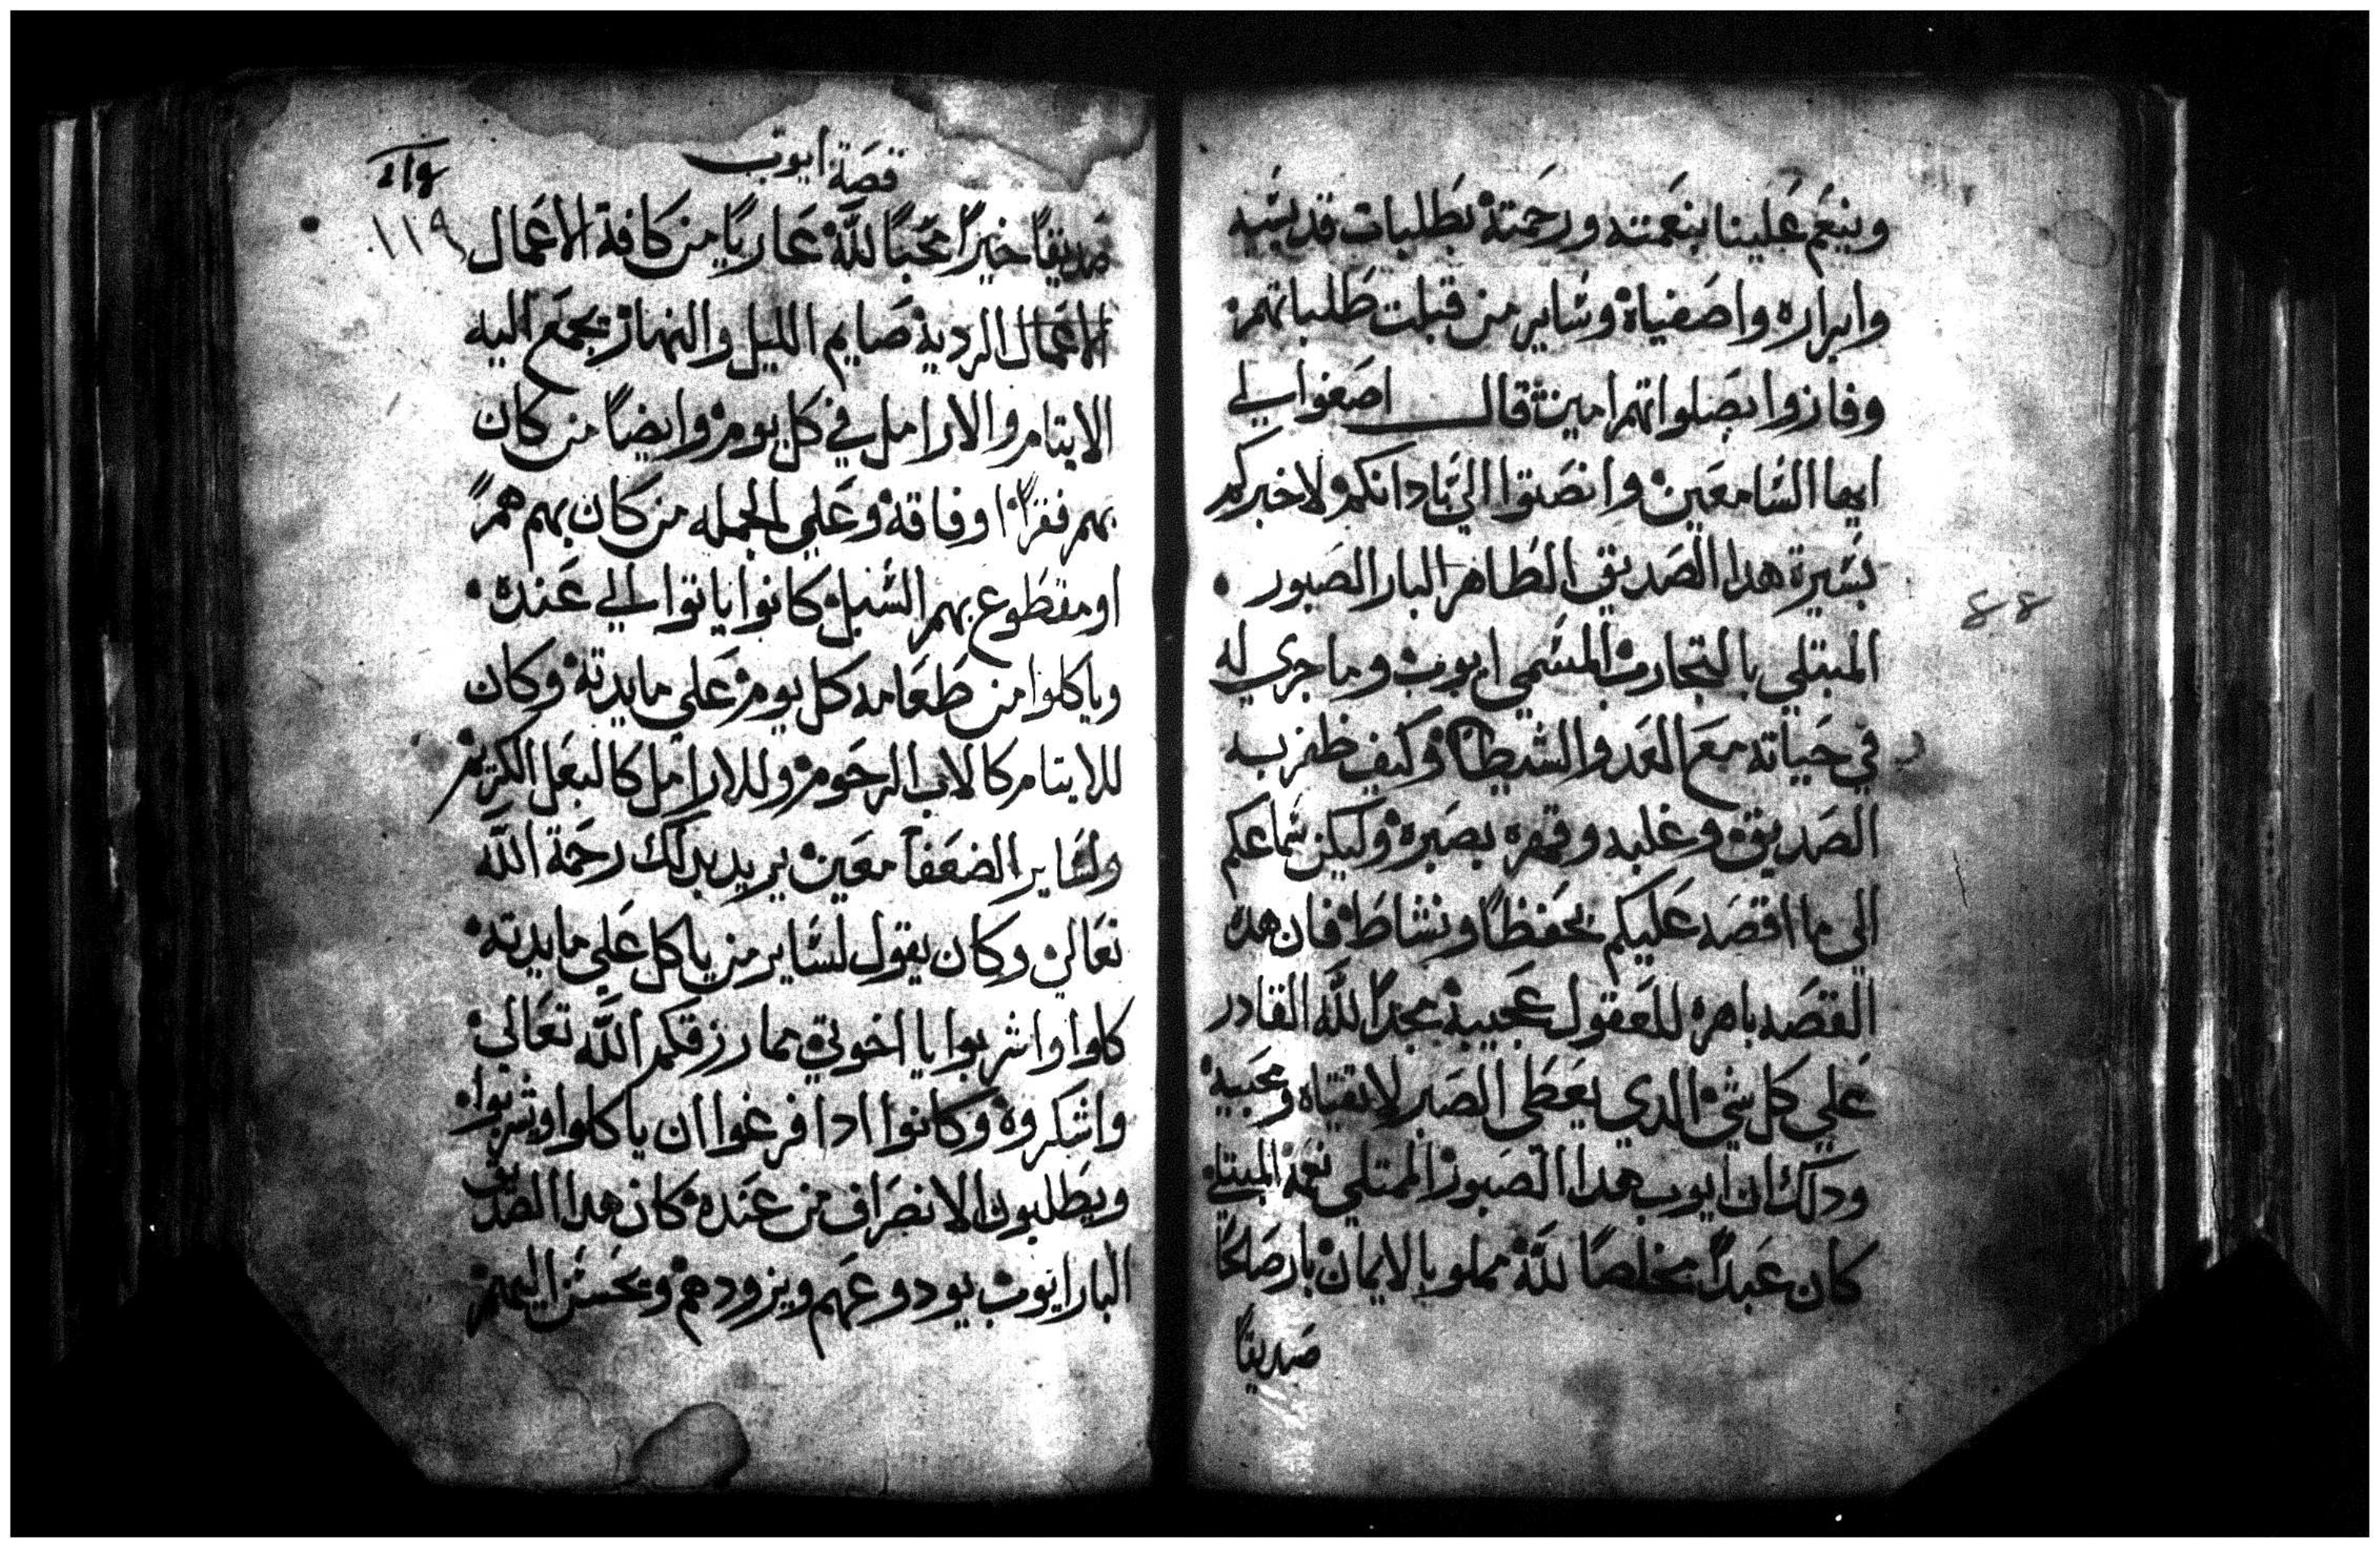 وينعم علينا بنعمته ورحمته بطلبات قديسيه
وابراره واصفياه وساير من قبلت طلباتهم
وفازوا بصلواتهم امين قال اصغوا لي
ايها السامعين وانصتوا الي بادانكم ولاخبركم
بسيرة هدا الصديق الطاهر البار الصبور
المبتلي بالتجارب المسمي ايوب وما جري له
في حياته مع العدو الشيطان وكيف ظفر به
الصديق وغلبه وقهره بصبره وليكن سماعكم
الي ما اقصه عليكم بحفظاً ونشاط فان هده
القصه باهره للعقول عجيبه مجداً لله القادر
علي كل شي الدي يعطي الصبر لاتقياه ومحبيه
ودلك ان ايوب هدا الصبور الممتلي نعمة المبتلي
كان عبداً مخلصاً لله مملو بالايمان بار صالحاً
صديقاً
قصة ايوب
١١٩
صديقاً خيراً محباً لله عارياً من كافة الاعمال
الاعمال الرديه صايم الليل والنهار يجمع اليه
الايتام والارامل في كل يوم وايضاً من كان
بهم فقراً او فاقة وعلي الجمله من كان بهم هم
او مقطوع بهم السبل كانوا ياتوا الي عنده
وياكلوا من طعامه كل يوم علي مايدته وكان
للايتام كالاب الرحوم وللارامل كالبعل الكريم
ولساير الضعفا معين يريد بدلك رحمة الله
تعالي وكان يقول لساير من ياكل علي مايدته
كلوا واشربوا يا اخوتي مما رزقكم الله تعالي
واشكروه وكانوا ادا فرغوا ان ياكلوا ويشربوا
ويطلبون الانصراف من عنده كان هدا الصديق
البار ايوب يودوعهم ويزودهم ويحسن اليهم